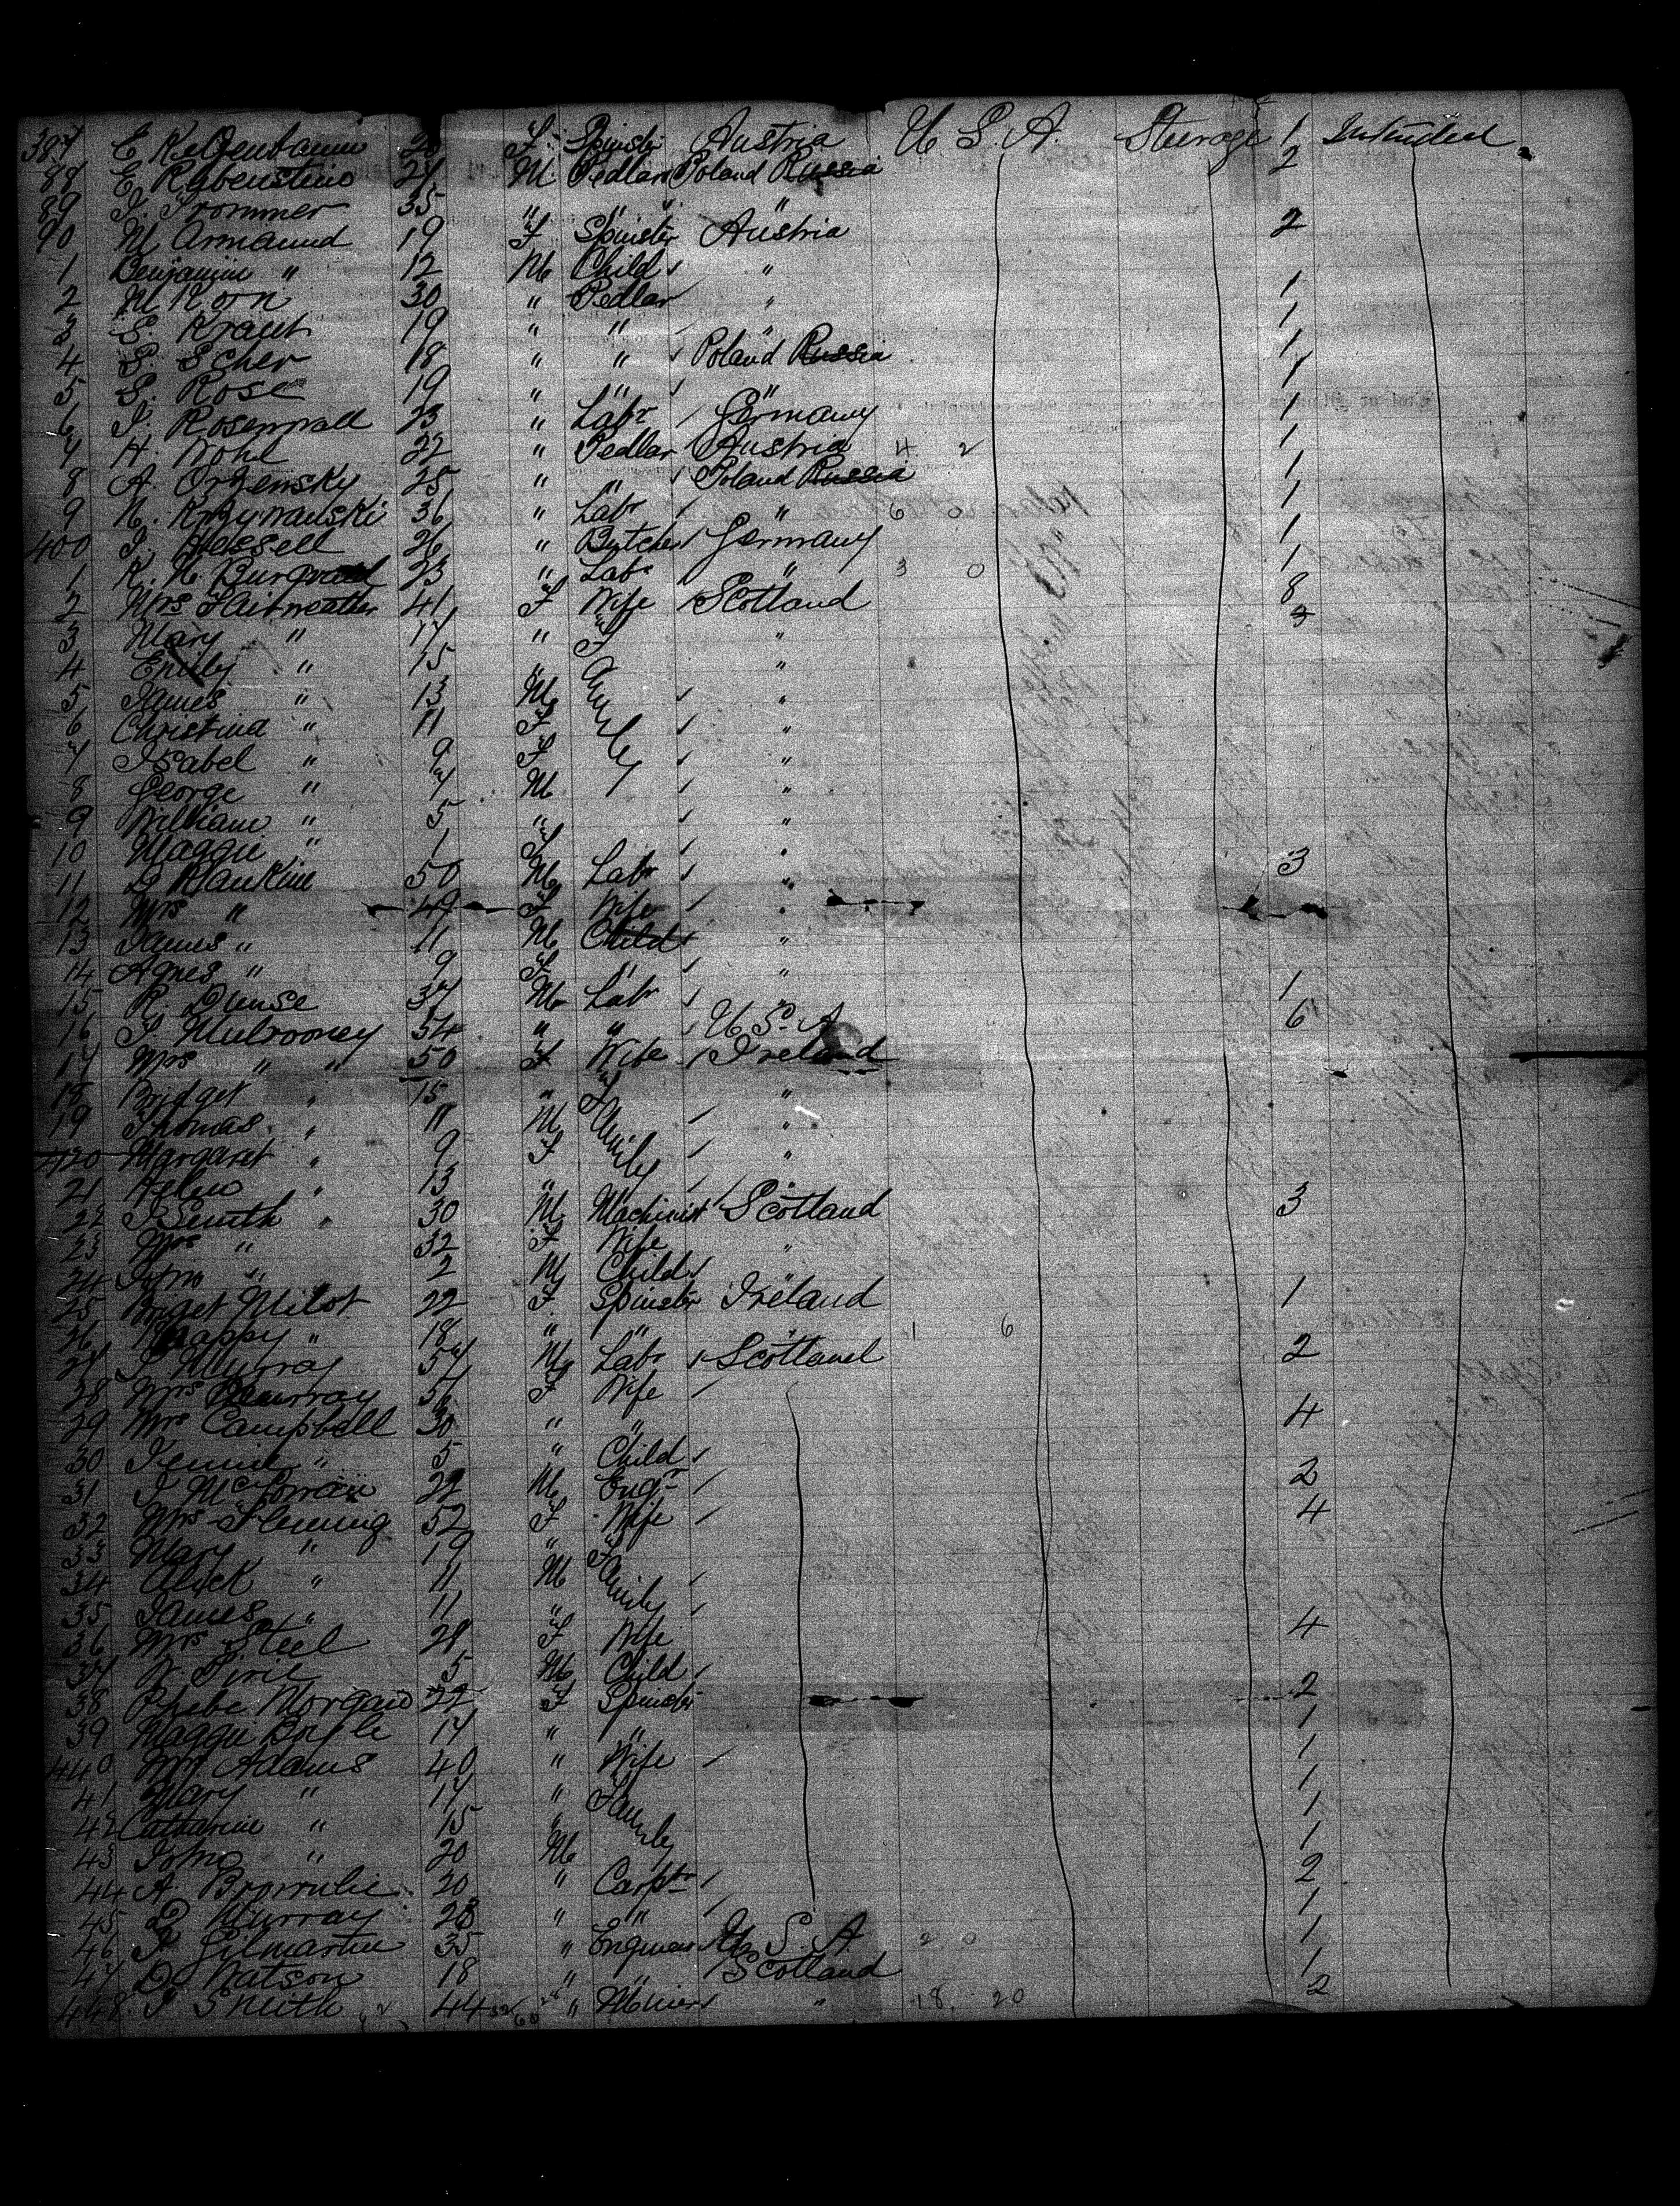 387 E Katzenbaum F Spinstr Austria U S. A. Steerage 1 Intended
88 E Rubenstein 24 M. Pedlar Poland Russia 2
89 I. Trommer 35 " " "
90 M Armannd 19 F Spinster Austria 2
1 Benjamin " 12 M Child "
2 M Korn 30 " Pedlar " 1
3 S. Kraut 19 " " " 1
4 S. Scher 18 " " Poland Russia 1
5 S. Rose 19 " " " 1
6 I. Rosenwall 23 " Labr Germany 1
7 H. Wohl 22 " Pedlar Austria 4 2 1
8 A. Orzensky 25 " " Poland Russia 1
9 N. Krzynauski 36 " Labr " 6 0 1
400 I. Hessell 26 " Butcher Germany 1
1 K. H. 23 " Labr " 3 0 1
2 Mrs Fairweather 41 F Wife Scotland 8
3 Mary " 17 " Family "
4 Emily " 15 " "
5 James " 13 M "
6 Christina " 11 F "
7 Isabel " 9 F "
8 George " 7 M "
9 William " 5 " "
10 Maggie " 1 F "
11 D Rankine 50 M Labr " 3
12 Mrs " 49 F Wife "
13 James " 11 M Child "
14 Agnes " 9 F " "
15 R. Dunse 37 M Labr " 1
16 T. Mulrooney 54 " " U. S. A 6
17 Mrs " " 50 F Wife Ireland
18 Bridget " 15 " Family "
19 Thomas " 11 M "
420 Margaret " 9 F "
21 Helen " 13 " "
22 J Smith " 30 M Machinist Scotland 3
23 Mrs " 32 F Wife "
24 John " 2 M Child "
25 Briget Milot 22 F. Spinster Ireland 1
26 " 18 " " " 1 6
27 J Murray 57 M Labr Scotland 2
28 Mrs Murray 56 F Wife
29 Mrs Campbell 30 " " 4
30 Jennie " 5 " Child
31 J 22 M Engr 2
32 Mrs Fleming 52 F Wife 4
33 Mary " 19 " Family
34 Alick " 11 M
35 James " 11 "
36 Mrs Steel 28 F Wife 4
37 W. Pirie 5 M Child
38 Phebe Morgan 22 F Spinster 2
39 Maggie Boyle 17 " " 1
440 Mrs Adams 40 " Wife 1
41 Mary " 17 " Family 1
42 Catharine " 15 " 1
43 John " 20 M 1
44 A Brownlie 20 " Carptr 2
45 D Murray 28 " " 1
46 J Gilmartin 35 " Engineer U. S. A 2 0 1
47 D. Watson 18 " " Scotland 1
448 J Smith 44 " Miner " 18. 20 2